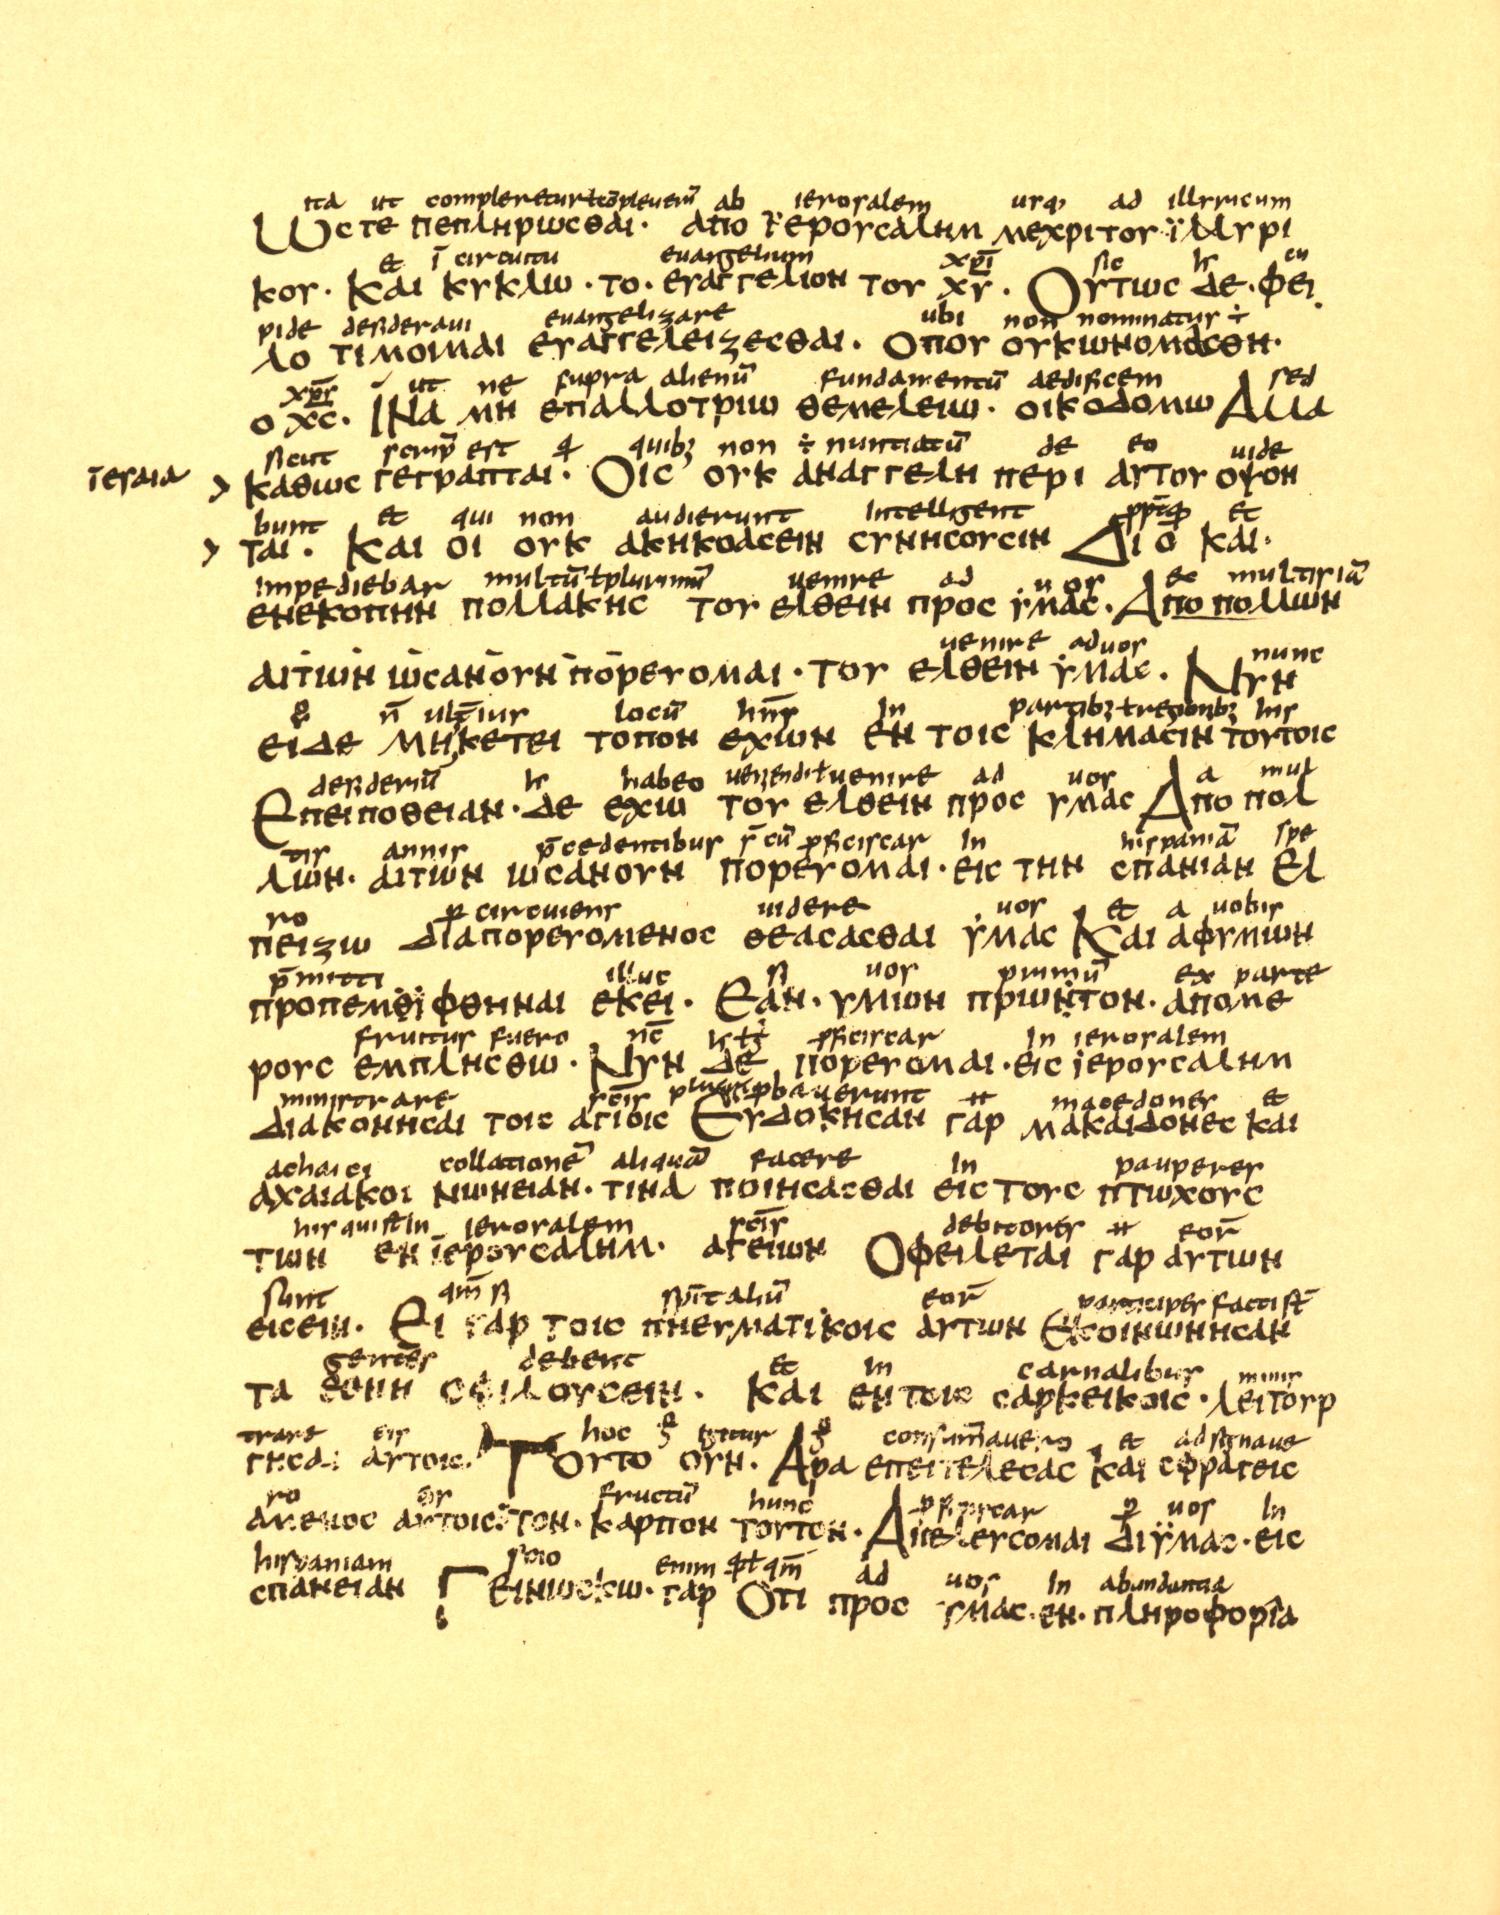 ita ut compleretur ł cōpleverī ab ierosalem usq; ad illiricum
Ωϲτε πεπληρωϲθαι · απο ϊερουϲαλημ μεχρι του ϊλλυρι
et ī circuitu evangelium xpī sic h en
κου · Και κυκλω · το · ευαγγελιον του χυ · Ουτωϲ δε · φει
pide desideravi evangelizare ubi non nominatus ÷
λο τιμοιμαι ευαγγελειζεϲθαι · οπου ουκ ωνομαϲθη ·
xpς ut ne supra alienū fundamentū aedificem sed
ο χϲ · Ινα μη επαλλοτριω θεμελειω · οικοδομω Αλλα
sicut scrip̄ est quib; non ÷ nuntiatū de eo vide
ιesaia > καθωϲ γεγραπται · Οιϲ ουκ αναγγελη περι αυτου οψον
bunt et qui non audierunt intelligent et
> ται · Και οι ουκ ακηκοαϲειν ϲυνηϲουϲιν Διο και ·
impediebar multū ł plurimū venire ad vos ac multifiā
ενεκοπτην πολλακηϲ του ελθειν προϲ υμαϲ · Απο πολλων
venire ad vos nunc
αιτων ωϲανουν πορευομαι · του ελθειν υμαϲ · Νυν
n̄ ulterius locū hn̄s in partib; ł regionib; his
ειδε μηκετει τοπον εχων εν τοιϲ κλημαϲιν τουτοιϲ
desideriū h habeo veniendi ł venire ad vos a mul
Επειποθειαν · δε εχω του ελθειν προϲ υμαϲ Απο πολ
tis annis p̄cedentibus s̄ cū proficiscar in hispaniā spe
λων · αιτων ωϲανουν πορευομαι · ειϲ την ϲπανιαν ελ
ro p circuiens videre vos et a vobis
πειζω διαπορευομενοϲ θεαϲαϲθαι υμαϲ Και αφυμων
p̄mitti illuc si vos primū ex parte
προπεμθϊ φθηναι εκει · Εαν · υμιων πρωντον · απομε
fructus fuero nc̄ proficiscar in ierosalem
ρουϲ εμπληϲθω · Νυν δε πορευομαι · ειϲ ιερουϲαλημ
ministrare scīs probaverunt macedones et
διακονηϲαι τοιϲ αγιοιϲ Ευδοκηϲαν γαρ μακαιδονεϲ και
achaici collationē aliquā facere in pauperes
αχαιακοι νωνειαν · τινα ποιηϲαϲθαι ειϲ τουϲ πτωχουϲ
his qui st̄ in ierosalem scīs debitores eor̄
των εν ϊερουϲαλημ · αγειων Οφειλεται γαρ αυτων
sunt qm̄ si spītaliū eor̄ participes facti st̄
ειϲειν · Ει γαρ τοιϲ πνευματικοιϲ αυτων Εκοινωνηϲαν
gentes debent et in carnalibus minis
τα εθνη οφιλουϲειν · και εν τοιϲ ϲαρκεικοιϲ · λειτουρ
trare eis hoc igitur consummavero et adsignave
γηϲαι αυτοιϲ · Τουτο ουν · Αρα επειτελεϲαϲ και ϲφραγειϲ
ro eis fructū hunc proficiscar p vos in
αμενοϲ αυτοιϲ · τον · καρπον τουτον · Απελευϲομαι δι ϋμαϲ · ειϲ
hispaniam scio enim qđ ł qm̄ ad vos in abundantia
ϲπανειαν Γεινωϲκω · γαρ Οτι προϲ υμαϲ · εν · πληροφορια